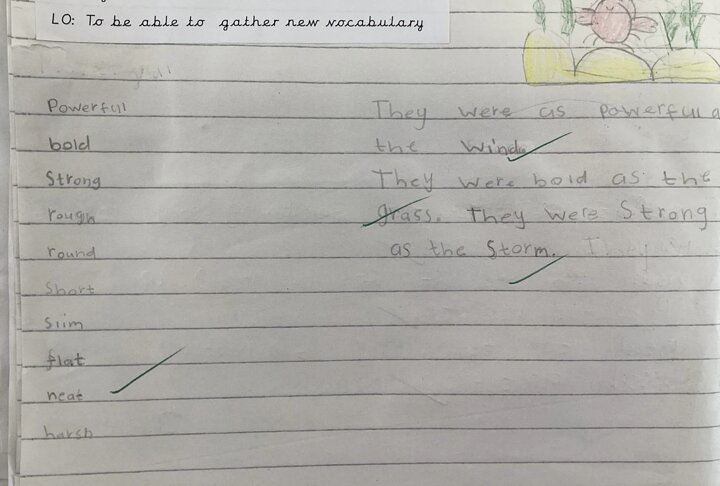 LO: To be able to gather new vocabulary
Powerful
bold
Strong
rough
round
Short
Slim
flat
neat
harsh
They were as powerful a
the wind.
They were bold as the
grass. They were Strong
as the Storm. They